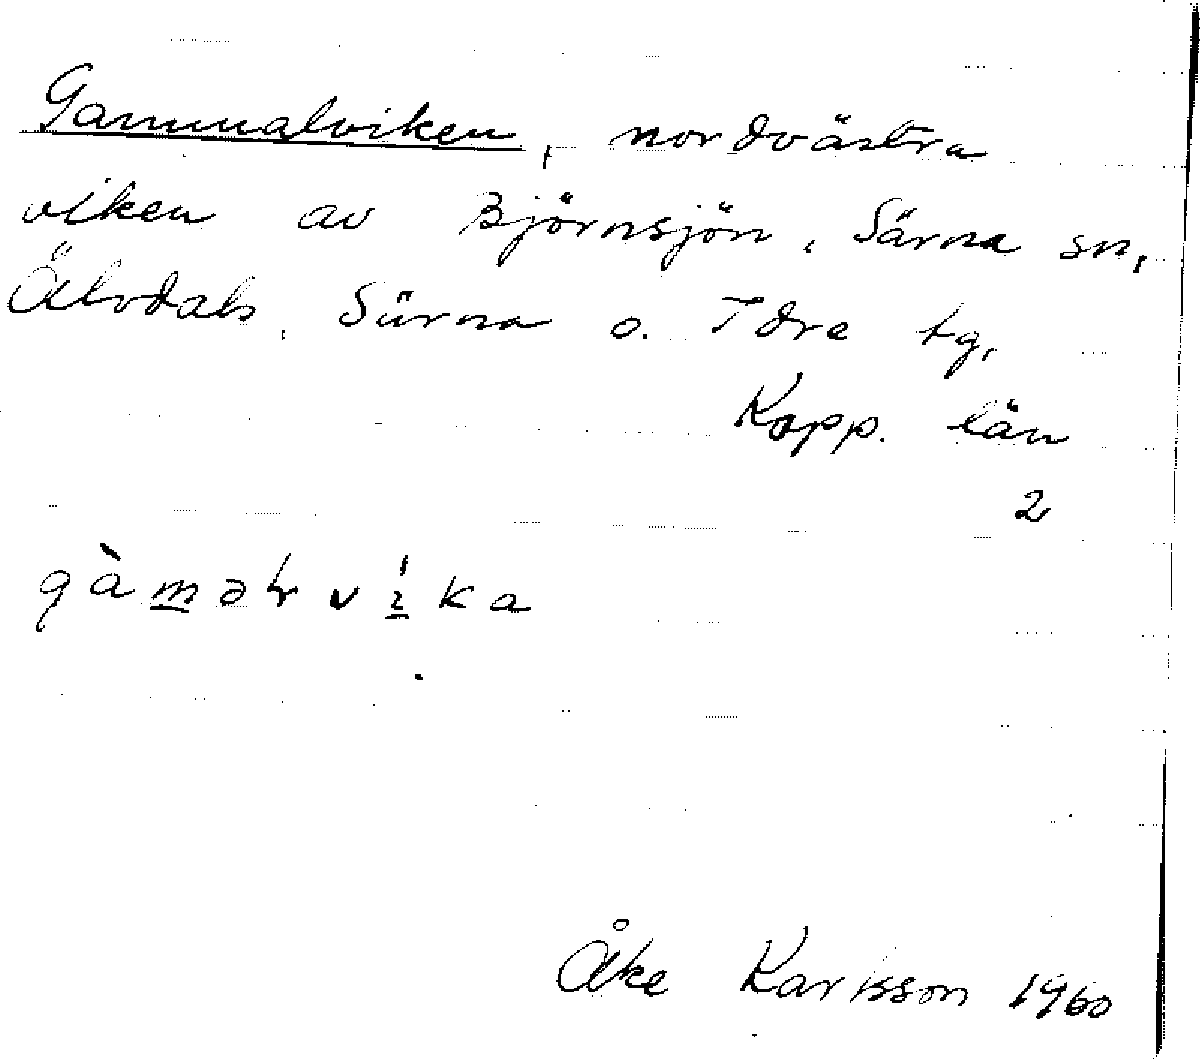 Gammalviken, nordvästra
viken av Björnsjön, Särna sn,
Älvdals, Särna o. Idre tg,
Kopp. län
2
gàməɫvìka
Åke Karlsson 1960